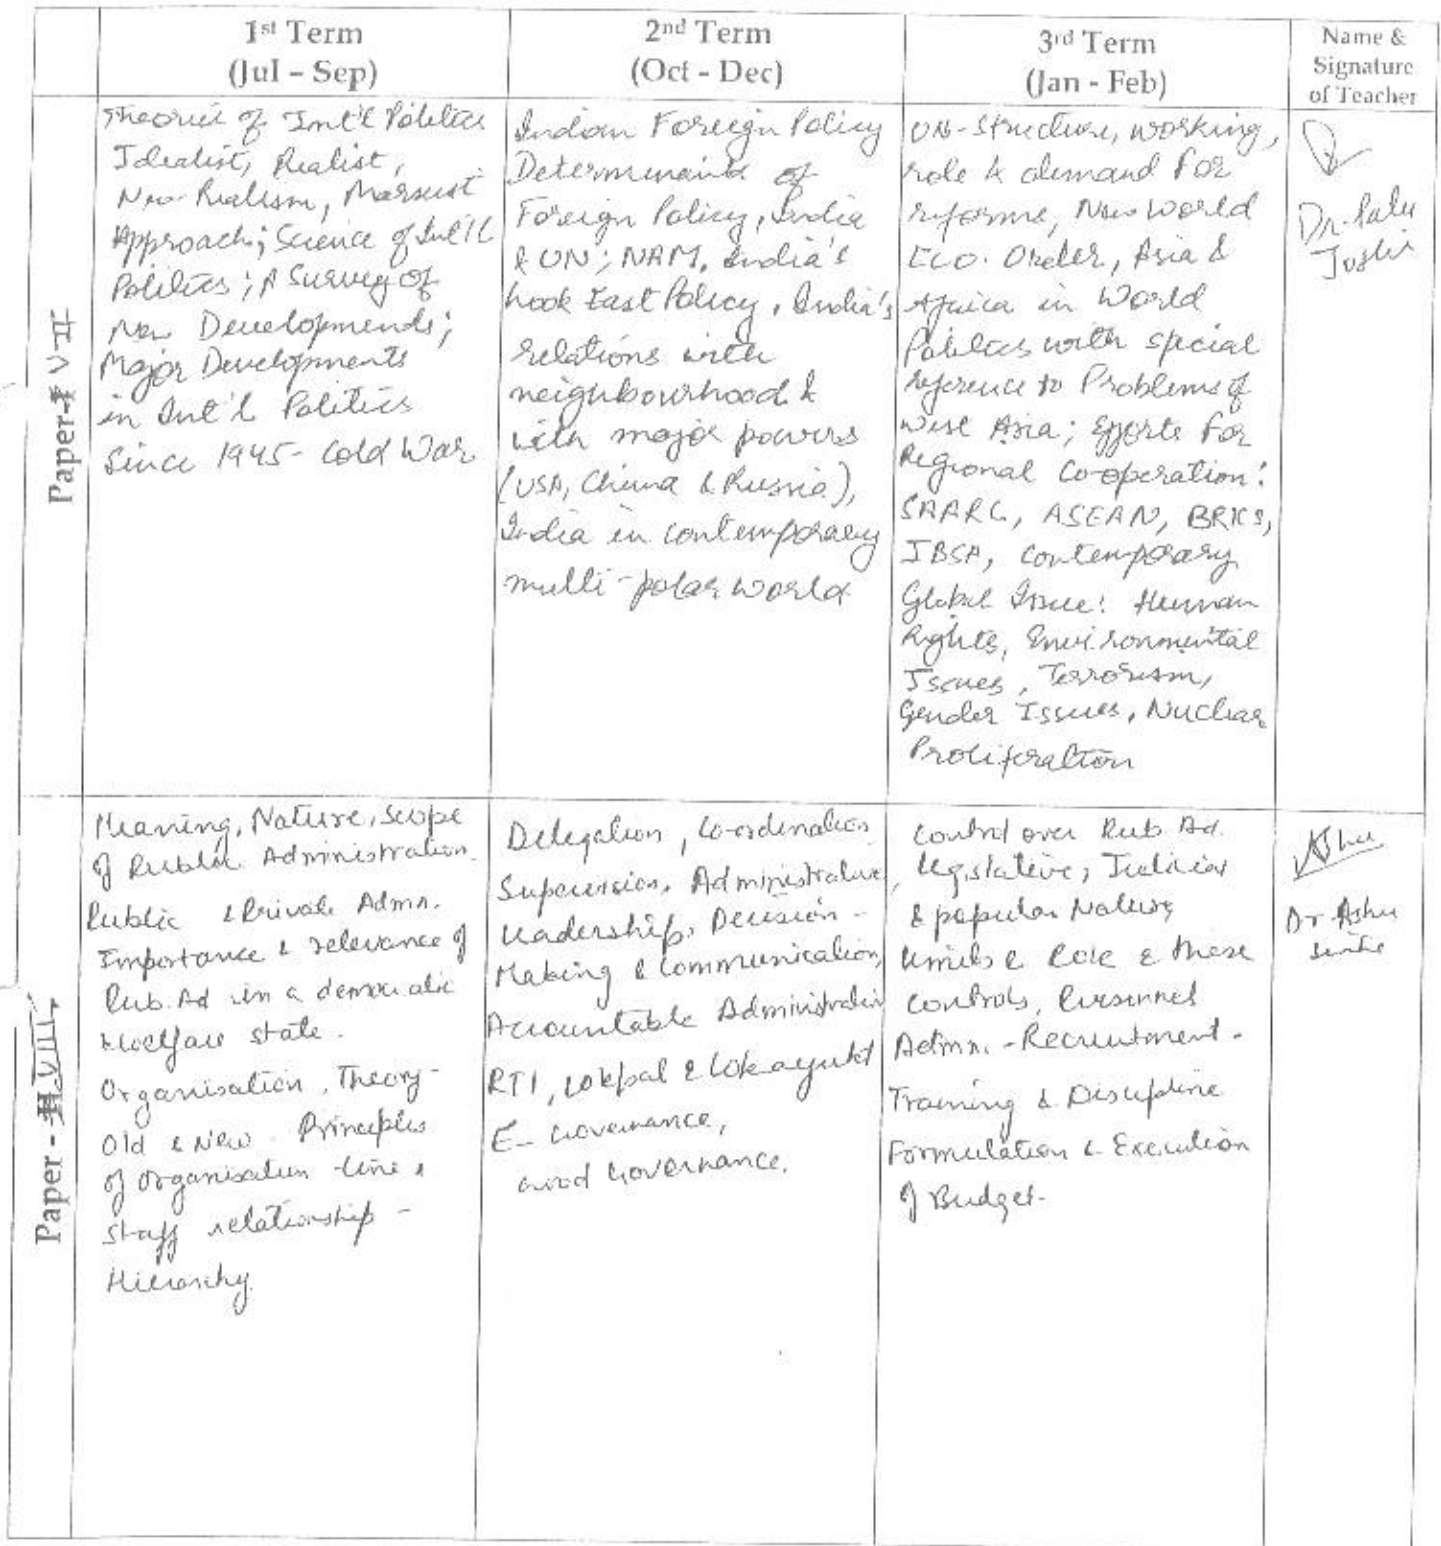 1st Term
(Jul – Sep)
2nd Term
(Oct - Dec)
3rd Term
(Jan - Feb)
Name &
Signature
of Teacher
Paper- VII
Theories of Int'l Politics
Idealist, Realist,
Neo-Realism, Marxist
Approach; Science of Int'l
Politics; A Survey of
New Developments;
Major Developments
in Int'l Politics
Since 1945- Cold War
Indian Foreign Policy
Determinants of
Foreign Policy, India
& UN; NAM, India's
Look East Policy, India's
relations with
neighbourhood &
with major powers
(USA, China & Russia),
India in contemporary
multi-polar world
UN-Structure, working,
role & demand for
reforms, New World
Eco. Order, Asia &
Africa in World
Politics with special
reference to Problems of
West Asia; Efforts for
Regional Co-operation:
SAARC, ASEAN, BRICS,
IBSA, Contemporary
Global Issue: Human
Rights, Environmental
Issues, Terrorism,
Gender Issues, Nuclear
Proliferation
Dr.
Joshi
Paper - VIII
Meaning, Nature, Scope
of Public Administration.
Public & Private Admn.
Importance & relevance of
Pub. Ad in a democratic
Welfare state.
Organisation, Theory-
Old & New Principles
of Organisation - Line &
Staff relationship -
Hierarchy.
Delegation, Co-ordination
Supervision, Administrative
Leadership, Decision -
Making & Communication,
Accountable Administration
RTI, Lokpal & Lokayukt
E- Governance,
Good Governance.
Control over Pub. Ad.
Legislative, Judicial
& popular Nature,
Limits & Role & these
Controls, Personnel
Admn. - Recruitment -
Training & Discipline
Formulation & Execution
of Budget-
Ashu
Dr Ashu